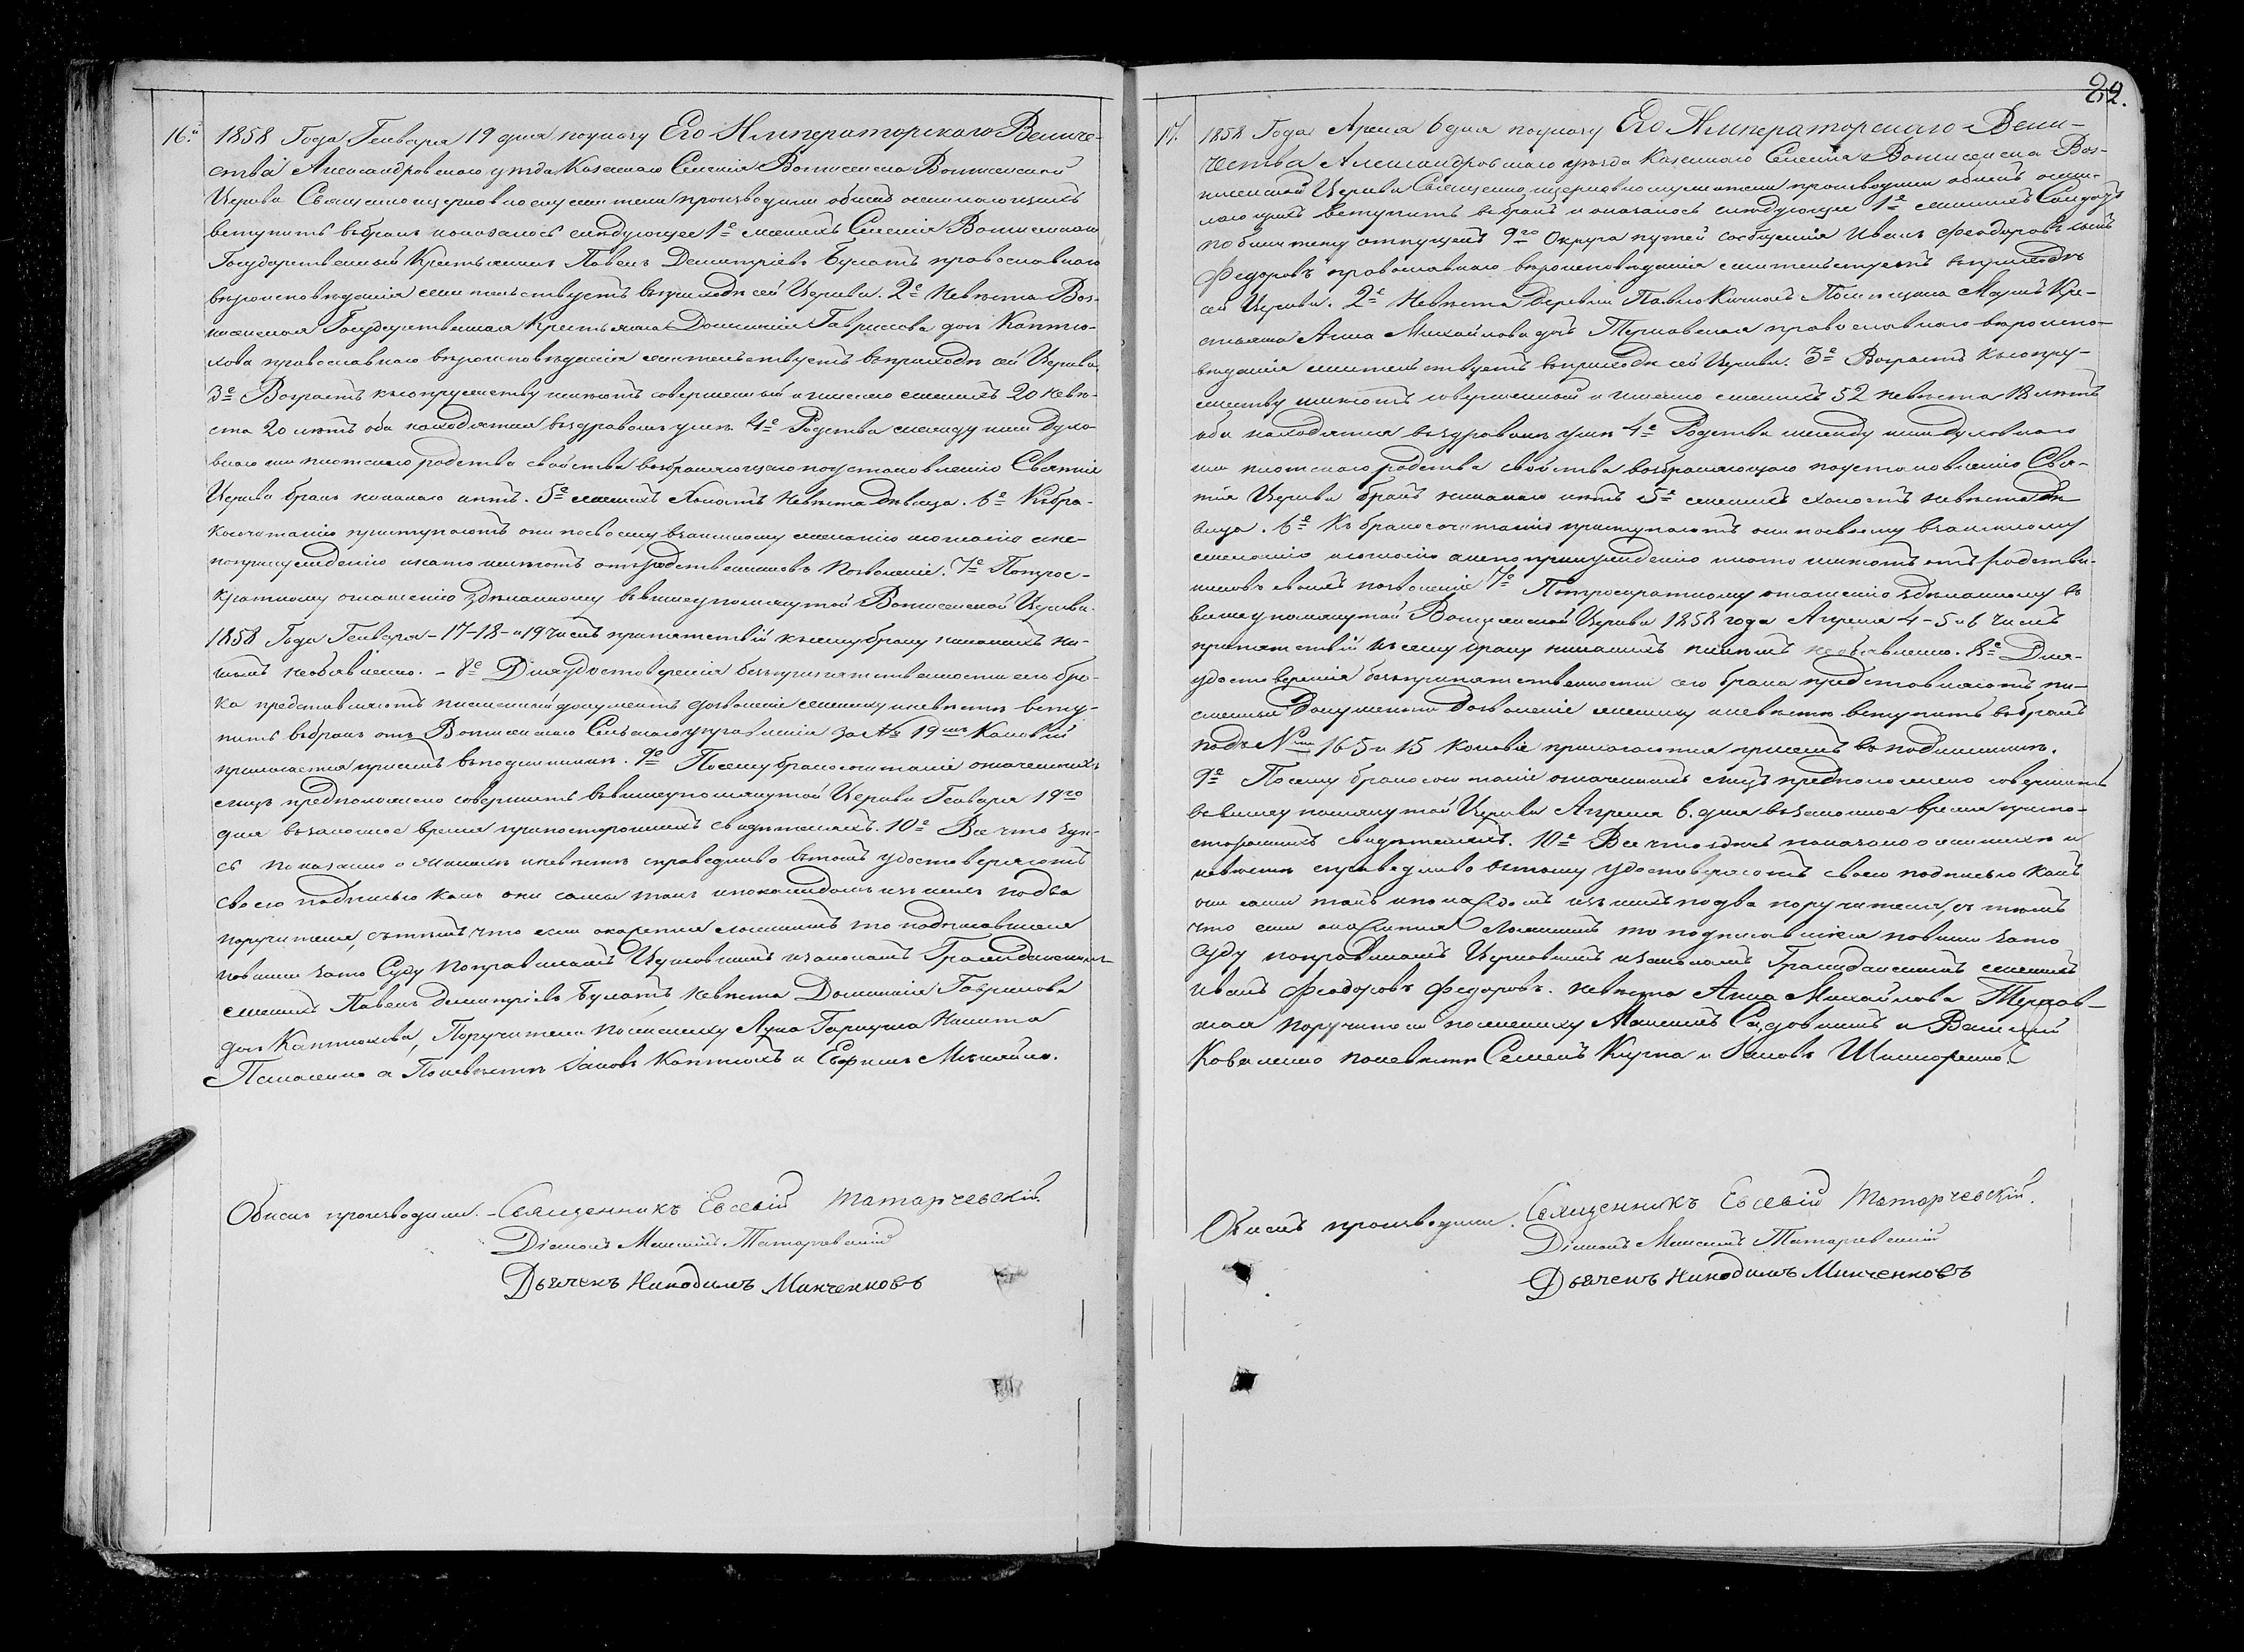 16й
1858 Года Генваря 19 дня поуказу Его Императорскаго Величе-
ства Александровскаго уезда Казеннаго Селенія Вознесенска Вознесенской
Церкви Священноцерковнослужители производили обыскъ о желающихъ
вступить въбракъ и оказалось слѣдующее 1е женихъ Селенія Вознесенки
Государственный Крестьянинъ Павелъ Димитріевъ Булатъ православнаго
вѣроисповѣданія жительствуетъ въприходѣ сей Церкви. 2е Невѣста Воз-
несенская Государственная Крестьянка Домникія Гаврилова дочь Каптю-
хова православнаго вѣроисповѣданія жительствуетъ въприходѣ сей Церкви
3е Возрастъ къ супружеству имѣютъ совершенный а именно женихъ 20 невѣ-
ста 20 лѣтъ оба находятся въздравомъ умѣ. 4е Родства между ими Духо-
внаго или плотскаго родства свойства возбраняющаго поустановленію Святыя
Церкви бракъ никакого нѣтъ. 5е женихъ Холостъ невѣста дѣвица. 6е Къбра-
косочетанію приступаютъ они посвоему взаимному желанію и согласію а не-
попринужденію и на то имѣютъ отъ родственниковъ позволеніе. 7е Потрое-
кратному оглашенію здѣланному въвышеупомянутой Вознесенской Церкви
1858 Года Генваря - 17-18- и 19 числъ препятствій къ сему браку никакихъ ни-
кѣмъ необъявлено. - 8е Для удостовѣренія безпрепятственности сего бра-
ка представляютъ письменный документъ дозволеніе жениху и невѣстѣ всту-
пить въбракъ отъ Вознесенскаго Сельскаго управленія за № 19мъ каковый
прилагается при семъ въ подлинникѣ. 9е Посему бракосочетаніе означенныхъ
лицъ предположено совершить въвышеупомянутой Церкви Генваря 19го
дня въ законное время при постороннихъ свидѣтеляхъ. 10е Все что здѣ-
сь показано о женихѣ и невѣстѣ справедливо въ томъ удостовѣряютъ
своею подписью какъ они сами такъ и по каждомъ изъ нихъ по два
поручителя, съ тѣмъ что если окажется ложнымъ то подписавшіеся
повинны за то Суду по правиламъ Церковнымъ и законамъ Гражданскимъ
женихъ Павелъ Димитріевъ Булатъ, невѣста Домникія Гаврилова
дочь Каптюхова, Поручители по жениху Лука Никита
Панасенко а По невѣстѣ Іаковъ Каптюхъ и Ефимъ
Обыскъ производили. - Священникъ Евсевій Татарчевскій.
Діаконъ Татарчевскій
Дьячекъ Никодимъ Минченковъ
22.
17.
1858 Года Апреля 6 дня поуказу Его Императорскаго Вели-
чества Александровскаго уезда Казеннаго Селенія Вознесенска Воз-
несенской Церкви Священноцерковнослужители производили обыскъ о жела-
ющихъ вступить въбракъ и оказалось слѣдующее 1е женихъ Солдатъ
по билету отпущенъ 9го Округа путей сообщенія Иванъ Феодоровъ сынъ
Федоровъ православнаго вѣроисповѣданія жительствуетъ въприходѣ
сей Церкви. 2е Невѣста деревни Павло Кичкасъ Помѣщика Кре-
стьянка Анна Михайлова дочь Терновская православнаго вѣроиспо-
вѣданія жительствуетъ въприходѣ сей Церкви. 3е Возрастъ къ супру-
жеству имѣютъ совершенный и именно женихъ 52 невѣста лѣтъ
оба находятся въздравомъ умѣ 4е Родства между ими духовнаго
или плотскаго родства свойства возбраняющаго поустановленію Свя-
тыя Церкви бракъ никакого нѣтъ 5е женихъ холостъ невѣста дѣ-
вица. 6е Къ бракосочетанію приступаютъ они посвоему взаимному
желанію и согласію а непопринужденію и на то имѣютъ отъ родстве-
нниковъ своихъ позволеніе 7е Потроекратному оглашенію здѣланному въ
вышеупомянутой Вознесенской Церкви 1858 года Апреля 4-5 и 6 числъ
препятствій къ сему браку никакихъ никѣмъ необъявлено. 8е Для
удостовѣренія безпрепятственности сего брака представляютъ пи-
сьменный Документы Дозволеніе жениху и невѣстѣ вступить въбракъ
подъ № 165 и 15 каковіе прилагаются при семъ въ подлинникѣ.
9е Посему бракосочетаніе означенныхъ лицъ предположено совершить
въвышеупомянутой Церкви Апреля 6. дня въ законное время при по-
стороннихъ свидѣтеляхъ. 10е Все что здѣсь показано о женихѣ и
невѣстѣ справедливо въ тому удостовѣряютъ своею подписью какъ
они сами такъ и по каждомъ изъ нихъ по два поручителя, съ тѣмъ
что если окажется ложнымъ то подписавшіеся повинны за то
Суду по правиламъ Церковнымъ и законамъ Гражданскимъ женихъ
Иванъ Феодоровъ Федоровъ. невѣста Анна Михайлова Тернов-
ская Поручители по жениху Максимъ и Василій
Коваленко по невѣстѣ Семенъ Кучка и Іаковъ Шинкоренко.
Обыскъ производили. Священникъ Евсевій Татарчевскій.
Діаконъ Татарчевскій
Дьячекъ Никодимъ Минченковъ